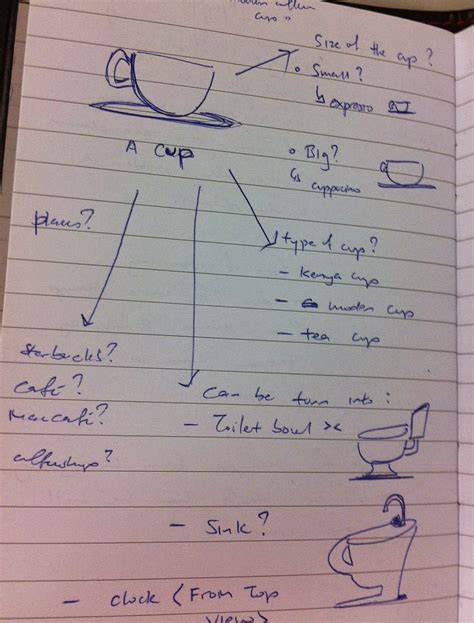 Size of the cup?
• Small?
↳ expresso
A cup
• Big?
↳ cuppucino
places?
type of cup?
- Kenya cup
- moden cup
- tea cup
Starbucks?
Café?
Maccafé?
Can be turn into:
- Toilet bowl ><
- Sink?
- clock (From Top
view)